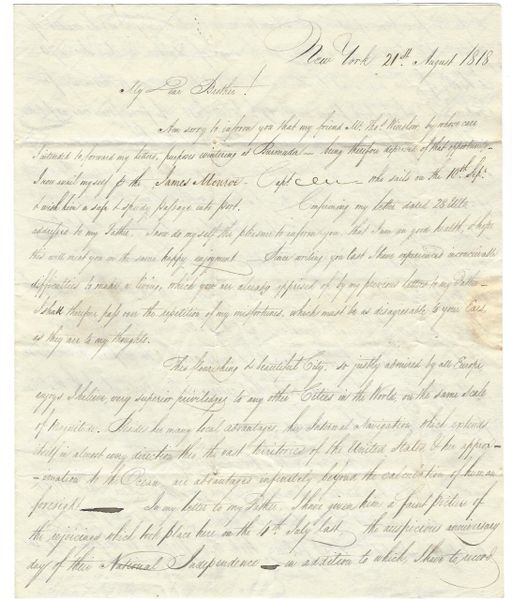 New York 21st. August 1818
My Dear Brother!
I am sorry to inform you that my friend Mr. Thos. Winslow, by whose care
I intended to forward my letters, purposes wintering at Bermuda — being therefore deprived of that opportunity
I now avail myself the James Monroe — Capt. who sails on the 10th Sepr.
& wish him a safe & speedy passage into port. Confirming my letter dated 28 Ulto.
addressed to my Father. I now do myself the pleasure to inform you, that I am in good health, & hope
this will meet you in the same happy enjoyment — Since writing you last I have experienced inconceivable
difficulties to make a living, which you are already apprised of by my previous letters to my Father —
I shall therefore pass over the repetition of my misfortunes, which must be as disagreeable to your Ears,
as they are to my thoughts.
This flourishing & beautiful City, so justly admired by all Europe
enjoys I believe, very superior privileges to any other Cities in the World, on the same scale
of Magnitude. Besides her many local advantages, her Internal Navigation, which extends
itself in almost every direction thro' the vast territories of the United States, & her approx-
-imation to the Ocean, are advantages infinitely beyond the calculation of human
foresight — In my letter to my Father, I have given him a faint picture of
the rejoicings which took place here on the 4th July last, the auspicious anniversary
day of their National Independence — in addition to which, I have to record